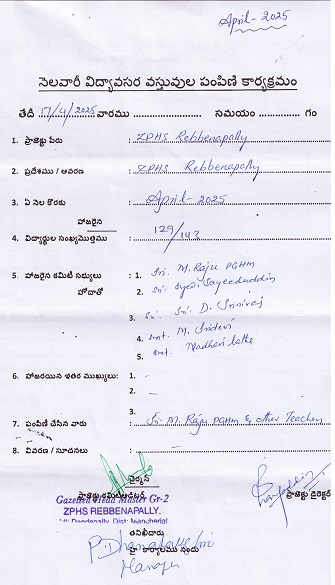 April - 2025
నెలవారీ విద్యావసర వస్తువుల పంపిణి కార్యక్రమం
తేదీ 17/4/2025 వారము ........................ సమయం ............... గం
1. ప్రాజెక్టు పేరు : ZPHS Rebbenapally
2. ప్రదేశము / ఆవరణ : ZPHS Rebbenapally
3. ఏ నెల కొరకు : April - 2025
హాజరైన
4. విద్యార్థుల సంఖ్య/మొత్తము : 129/143
5. హాజరైన కమిటీ సభ్యులు : 1. Sri. M. Raju PGHM
హోదాతో 2. Sri. Syed. Sayeeduddin
3. Sri. D. Srinivas
4. Smt. M. Sridevi
5. Smt. Madhavi latha
6. హాజరయిన ఇతర ముఖ్యులు: 1. -
2. -
3.
7. పంపిణి చేసిన వారు : Sri M. Raju PGHM & other Teachers
8. వివరణ / సూచనలు :
చైర్మన్
ప్రాజెక్టు డైరెక్టర్
Gazetted Head Master Gr-2
ZPHS REBBENAPALLY,
Dandepally, Dist: Mancherial
తనిఖీదారు
Manager